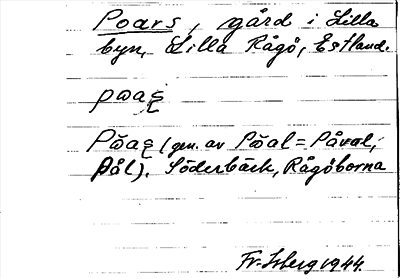 Poars, gård i Lilla
byn, Lilla Rågö, Estland.
pωaꞩ
Pω̆aꞩ (gen. av Pω̆al = Påval,
Pål). Söderbäck, Rågöborna
Fr. Isberg 1944.